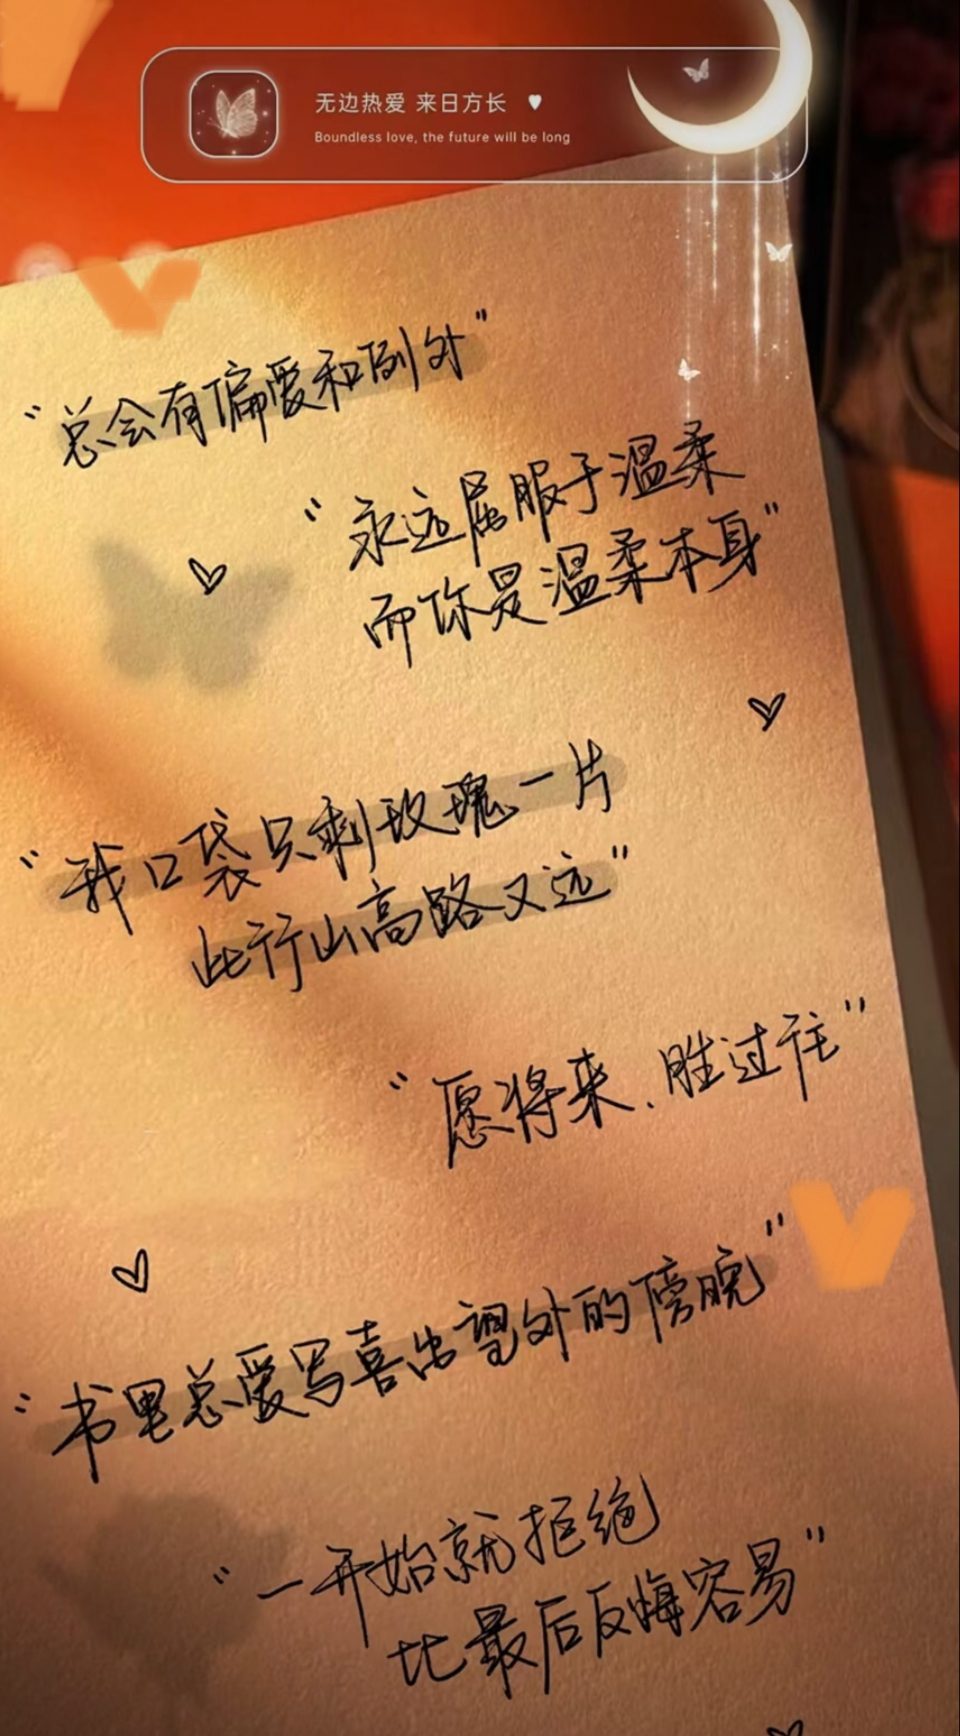 无边热爱 来日方长 ♥
Boundless love, the future will be long
“总会有偏爱和例外”
“永远屈服于温柔
而你是温柔本身”
“我口袋只剩玫瑰一片
此行山高路又远”
“愿将来、胜过往”
“书里总爱写喜出望外的傍晚”
“一开始就拒绝
比最后反悔容易”